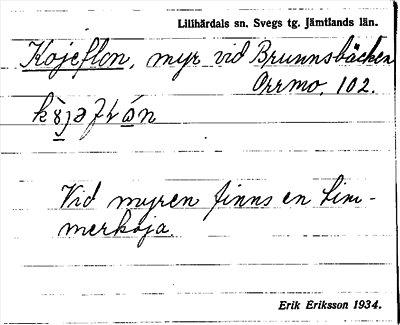 Lillhärdals sn. Svegs tg. Jämtlands län.
Kojeflon, myr vid Brunnsbäcken
Orrmo. 102.
Vid myren finns en tim-
merkoja.
Erik Eriksson 1934.